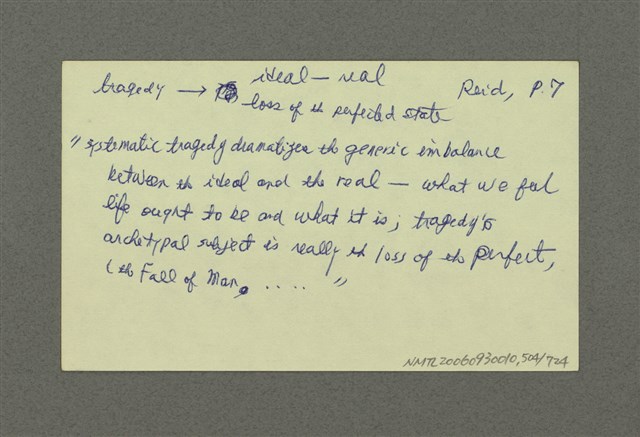 tragedy → ideal — real
loss of th perfected state
Reid, P. 7
" systematic tragedy dramatizes th generic imbalance
between th ideal and th real — what we feel
life ought to be and what it is; tragedy's
archetypal subject is really th loss of th perfect,
(th Fall of Man, .... "
NMTL20060930010,504/724